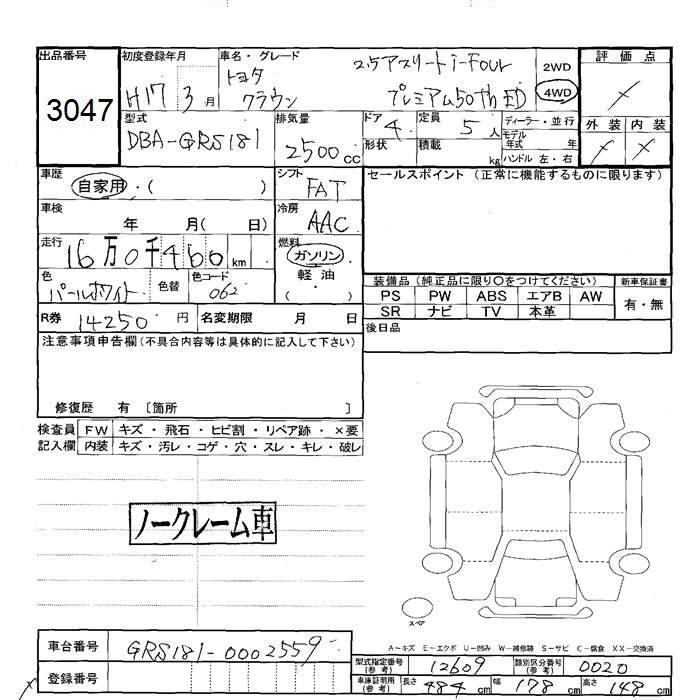 出品番号
3047
初度登録年月
H17 3月
車名・グレード
トヨタ
クラウン
2.5アスリートi-Four
プレミアム50th ED
2WD
4WD
評価点
外装 内装
型式
DBA-GRS181
排気量
2500cc
ドア
4
定員
5人
ディーラー・並行
モデル年式 年
ハンドル 左・右
形状
積載
kg
車歴
自家用・( )
シフト
FAT
セールスポイント(正常に機能するものに限ります)
車検
年 月( 日)
冷房
AAC
走行
16万0千460km
燃料
ガソリン
軽油
( )
色
パールホワイト
色替
色コード
062
装備品(純正品に限り○をつけてください)
新車保証書
PS PW ABS エアB AW
SR ナビ TV 本革
有・無
R券 14250円
名変期限 月 日
後日品
注意事項申告欄(不具合内容等は具体的に記入して下さい)
修復歴 有 〔箇所 〕
検査員記入欄
FW キズ・飛石・ヒビ割・リペア跡・×要
内装 キズ・汚レ・コゲ・穴・スレ・キレ・破レ
ノークレーム車
スペア
A-キズ E-エクボ U-凹み W-補修跡 S-サビ C-腐食 XX-交換済
車台番号 GRS181-0002559
登録番号
型式指定番号(参考) 12609
類別区分番号(参考) 0020
車庫証明用(参考) 長さ 484cm 幅 178cm 高さ 148cm